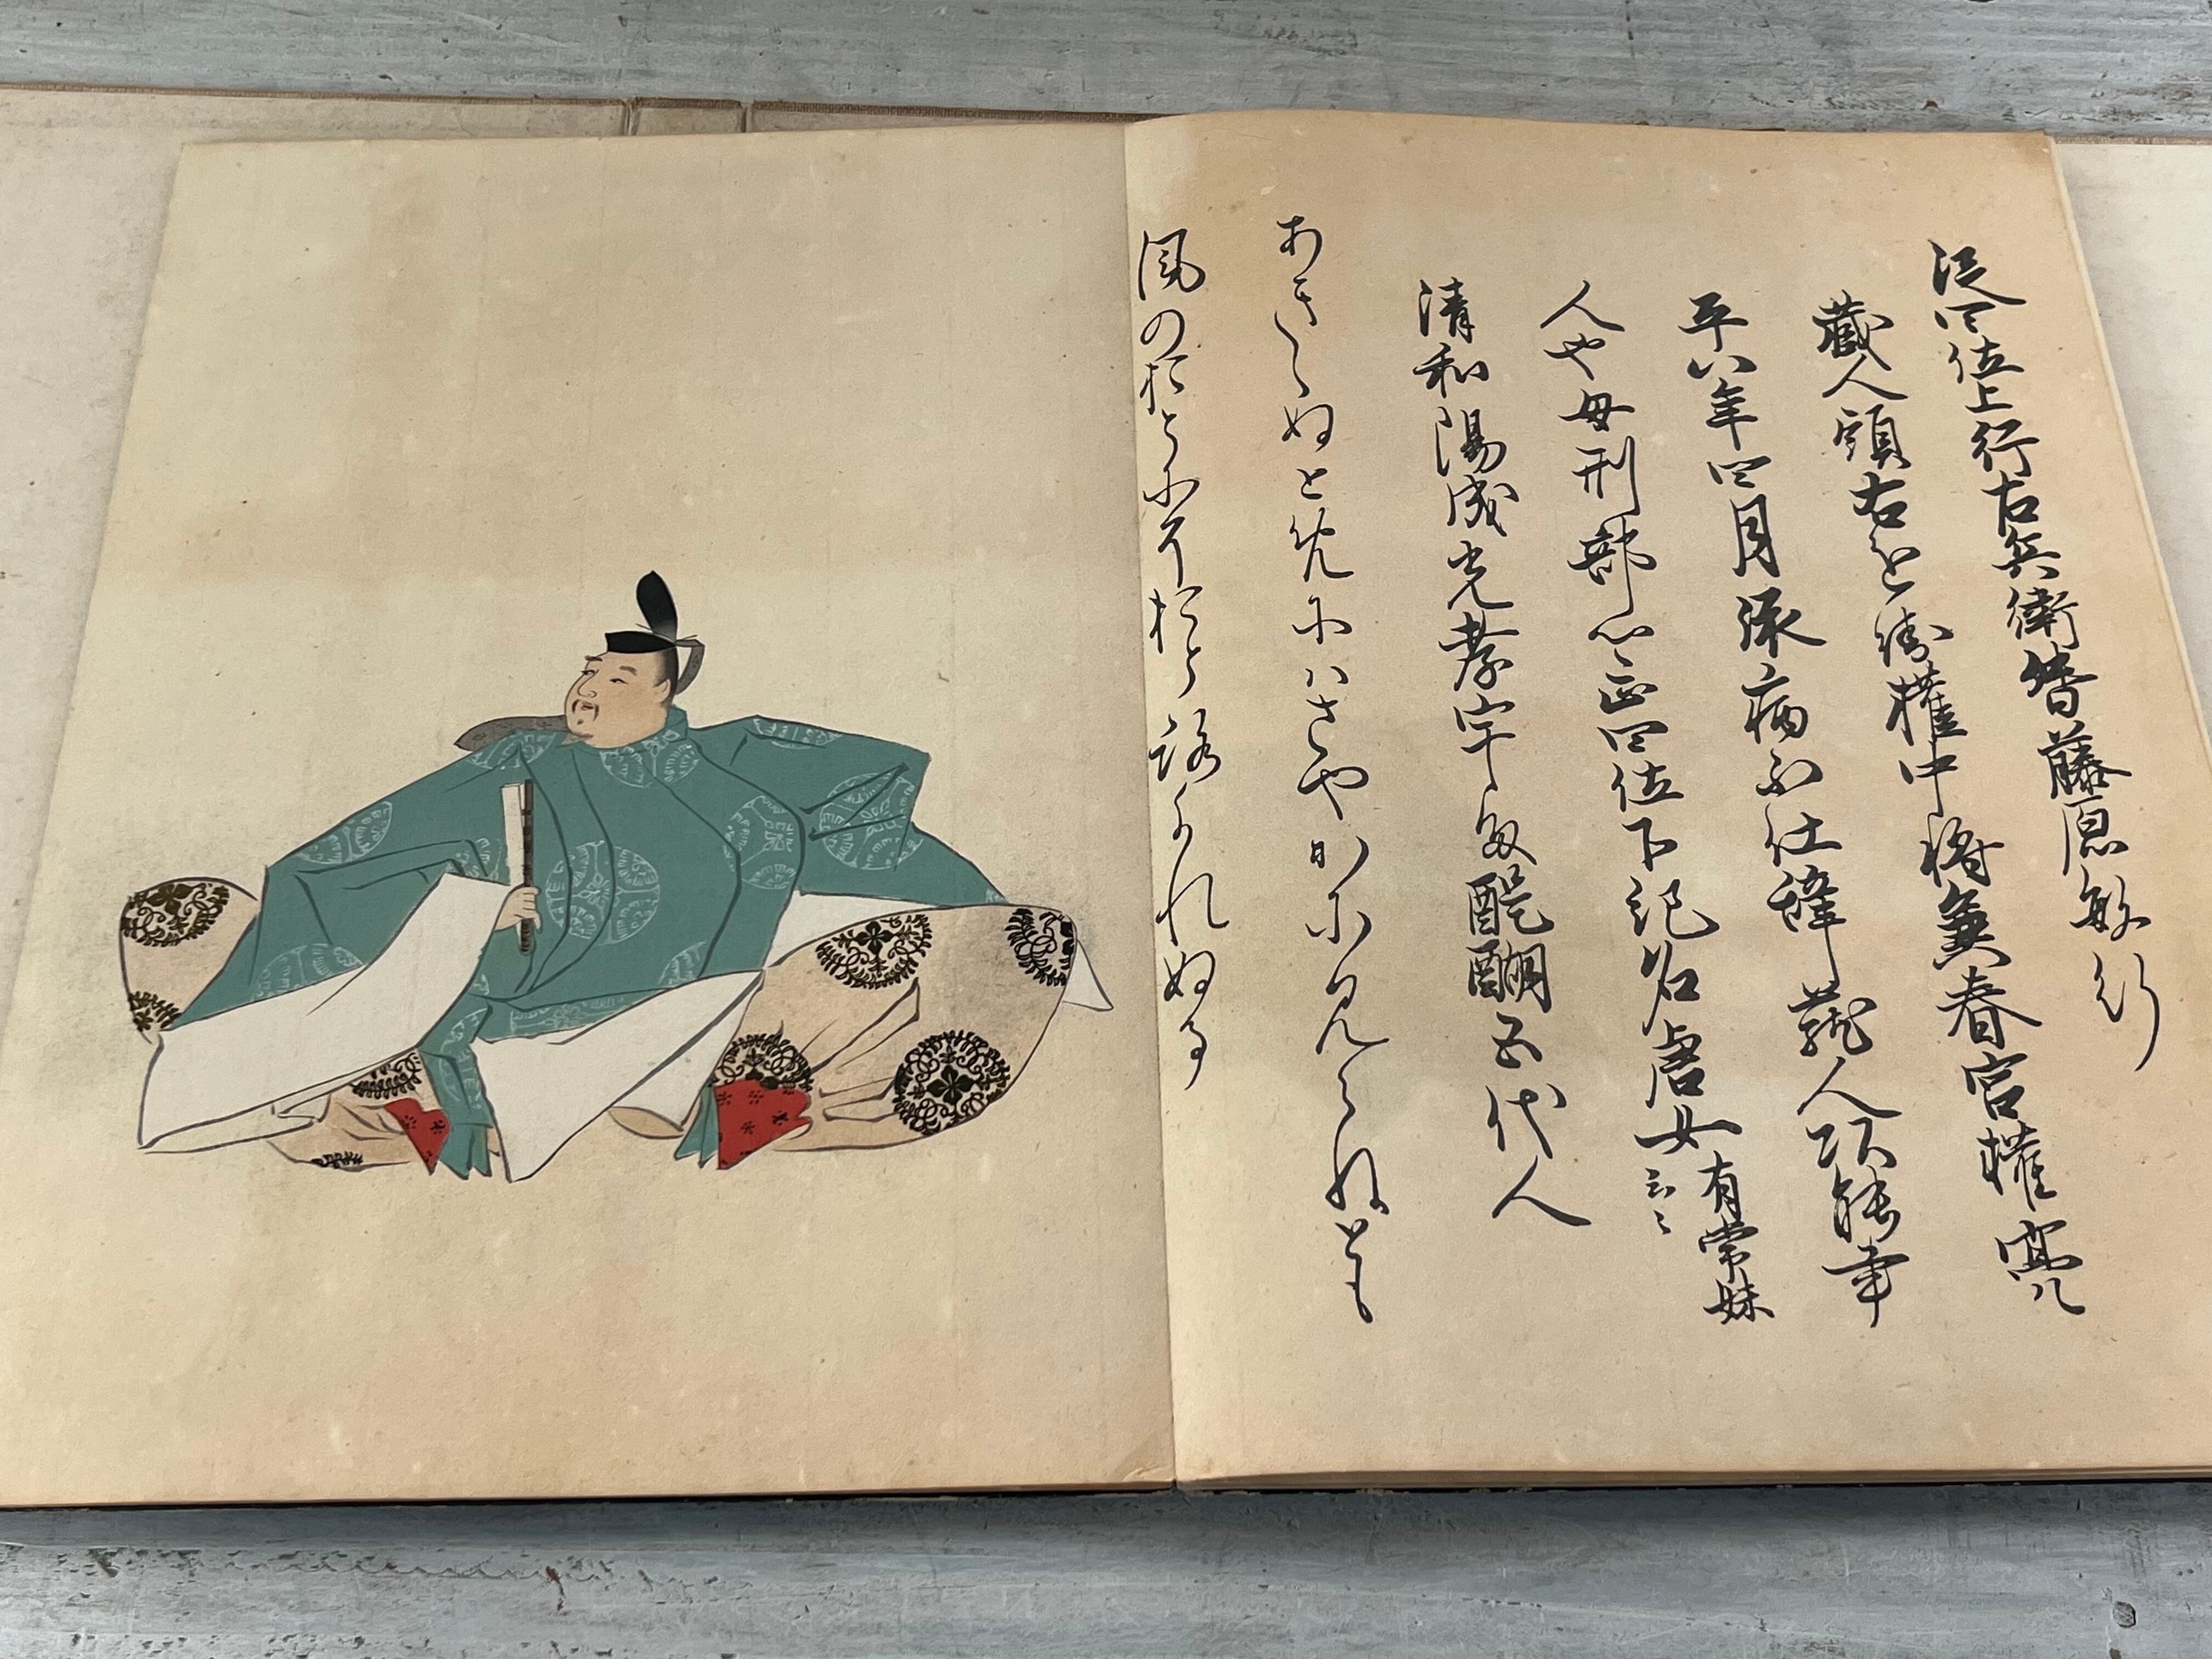 従四位上行右兵衛督藤原敏行
蔵人頭右近衛権中将兼春宮権亮
平八年四月依病不仕辞蔵人頭
人や母刑部 正四位下紀名虎女有常妹云々
清和陽成光孝宇多醍醐五代人
あききぬと先にハさやかに見えねとも
風のおとにそおとろかれぬる